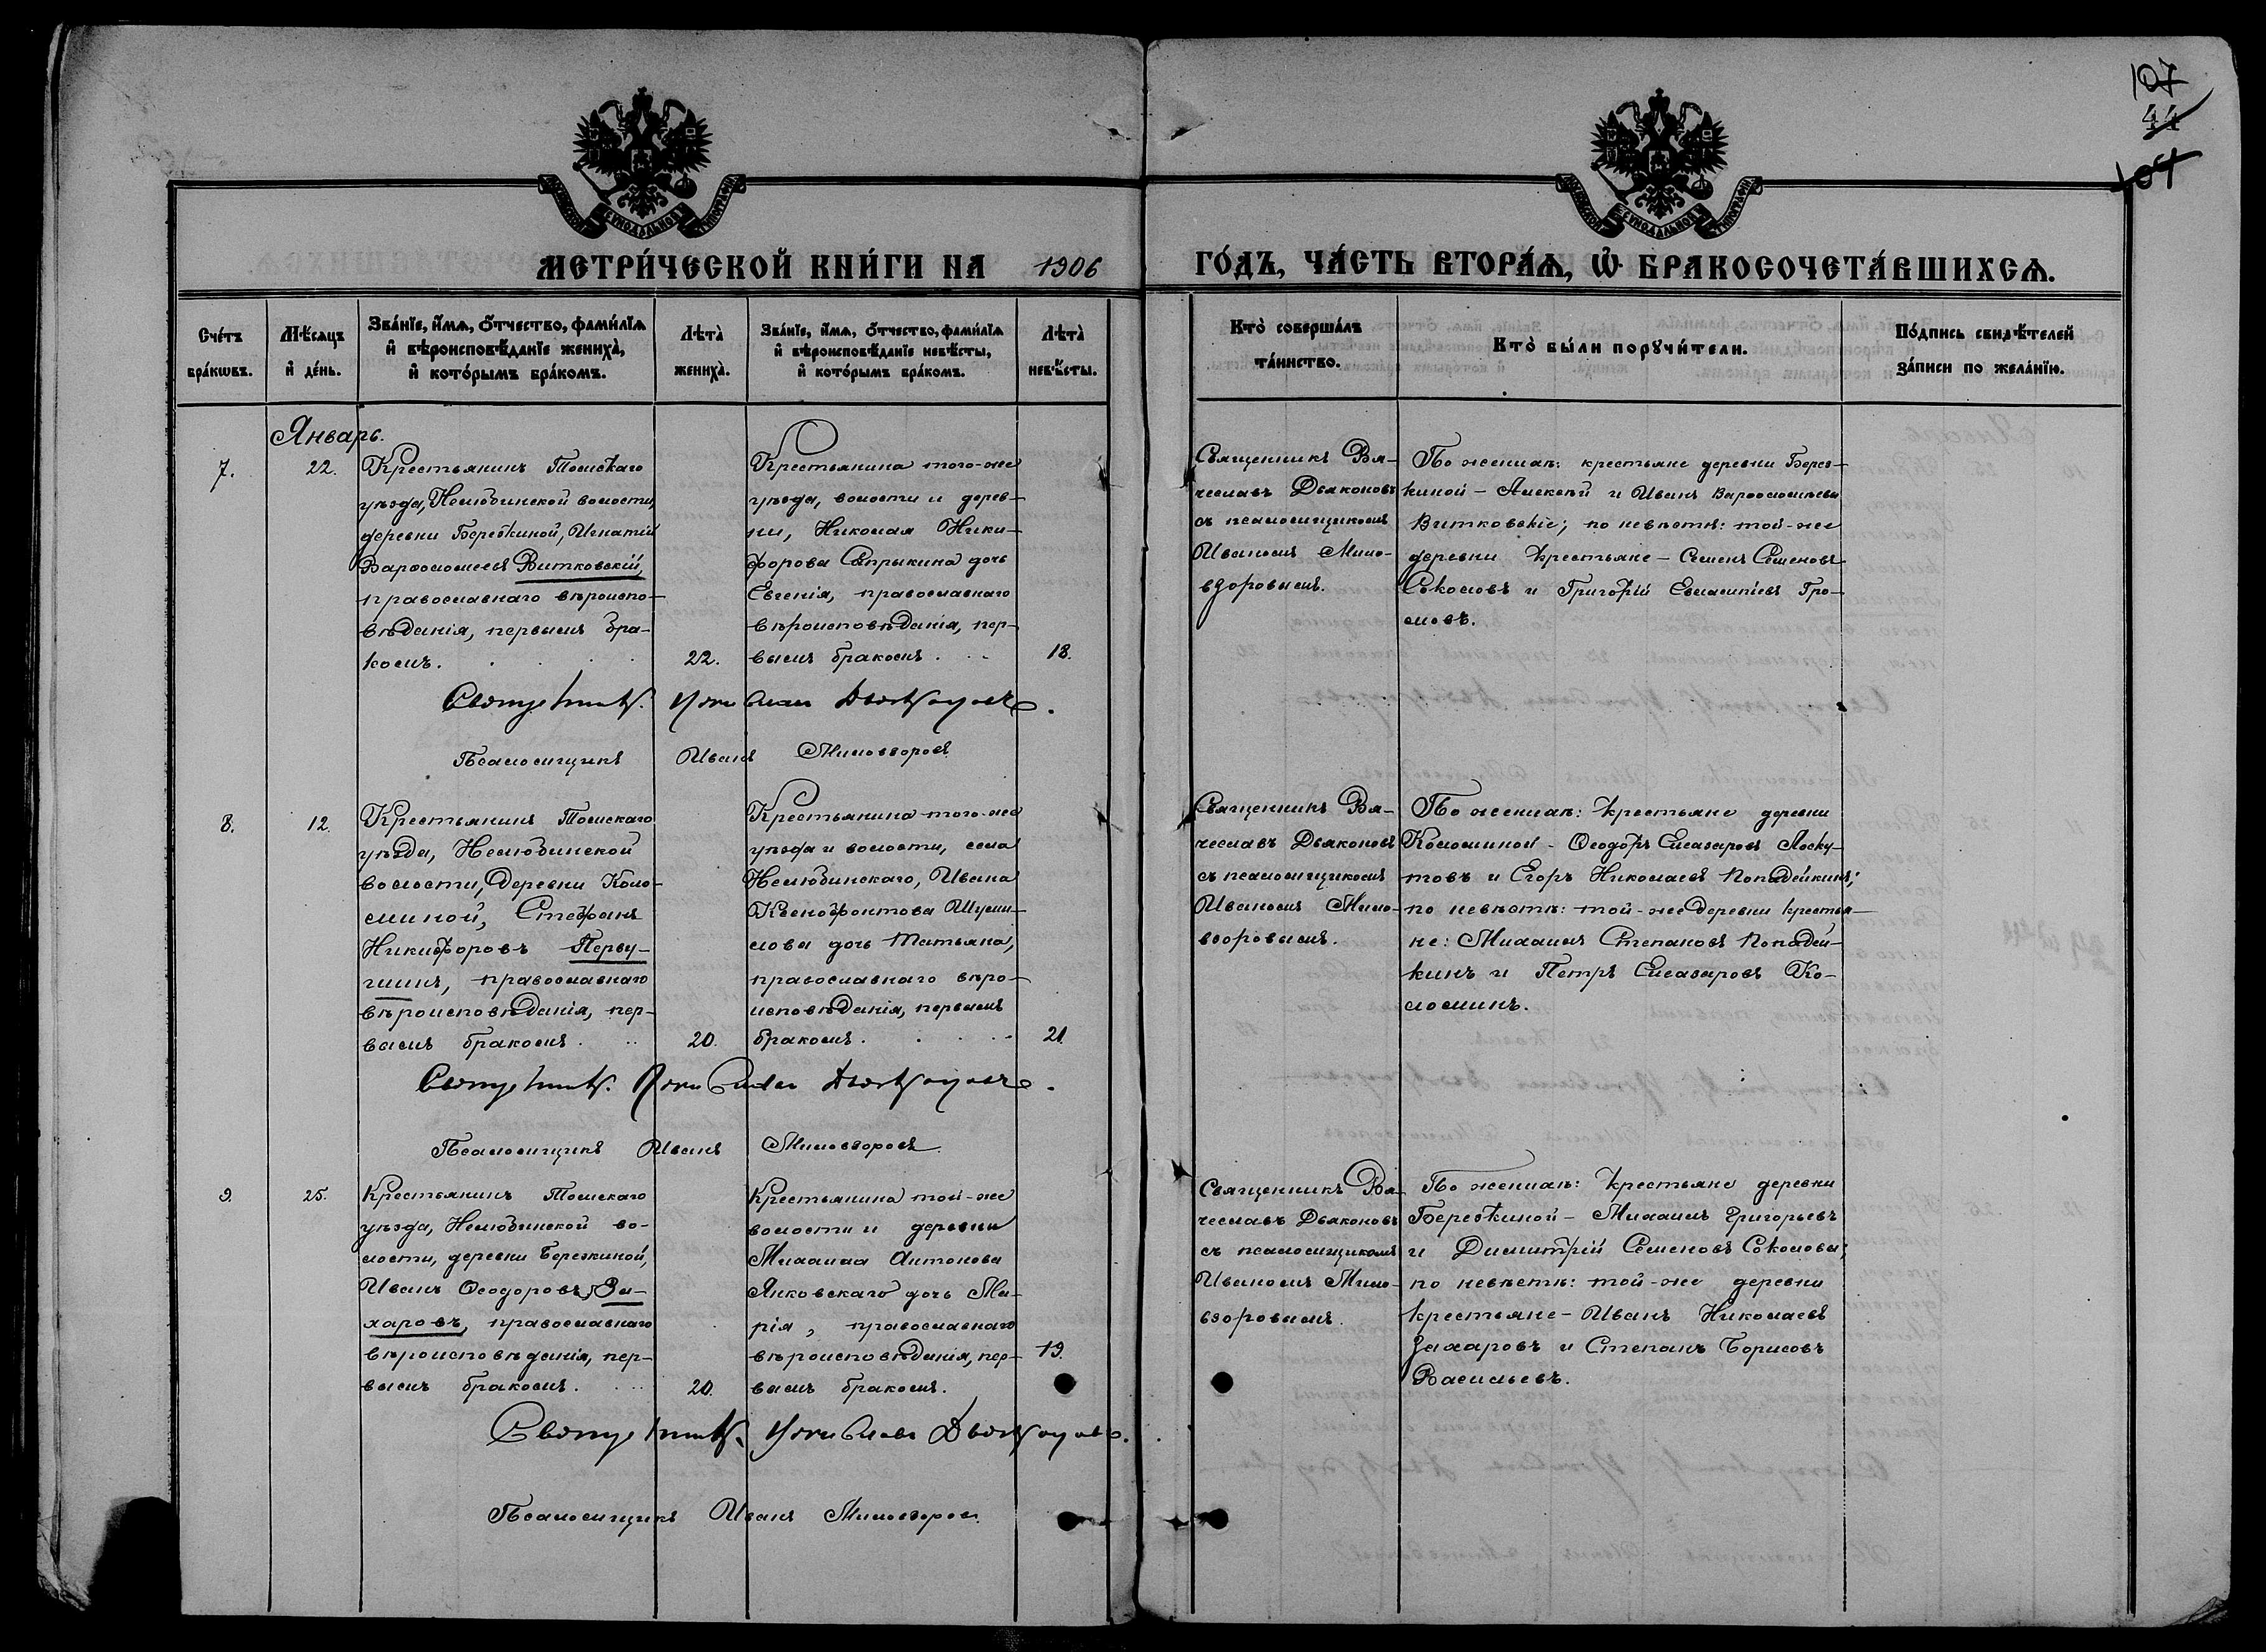 107
44
104
МЕТРИ́ЧЕСКОЙ КНИ́ГИ НА 1906
ГО́ДЪ, ЧА́СТЬ ВТОРА́Я, Ѡ БРАКОСОЧЕТА́ВШИХСЯ.
Сче́тъ бра́кѡвъ.
Мѣ́сяцъ и де́нь.
Зва́нїе, и́мя, о́тчество, фами́лїя
и вѣроисповѣ́данїе жениха̀,
и кото́рымъ бра́комъ.
Лѣта̀ жениха̀.
Зва́нїе, и́мя, о́тчество, фами́лїя
и вѣроисповѣ́данїе невѣ́сты,
и кото́рымъ бра́комъ.
Лѣта̀ невѣ́сты.
Кто̀ соверша́лъ
та́инство.
Кто̀ бы́ли порꙋчи́тели.
По́дпись свидѣ́телей
за́писи по жела́нїю.
Январь.
7.
22.
Крестьянинъ Томскаго
уѣзда, Нелюбинской волости,
деревни Березкиной, Игнатій
Варѳоломеевъ Витковскій,
православнаго вѣроиспо-
вѣданія, первымъ бра-
комъ.
22.
Крестьянина того-же
уѣзда, волости и дерев-
ни, Николая Ники-
форова Сапрыкина дочь
Евгенія, православнаго
вѣроисповѣданія, пер-
вымъ бракомъ.
18.
Священникъ Вя-
чеславъ Дьяконовъ
съ псаломщикомъ
Иваномъ Мило-
взоровымъ.
По женихѣ: крестьяне деревни Берез-
киной - Алексѣй и Иванъ Варѳоломѣевы
Витковскіе; по невѣстѣ: той-же
деревни крестьяне - Семенъ Семеновъ
Соколовъ и Григорій Евлампіевъ Гро-
мовъ.
Священникъ Вячеславъ Дьяконовъ.
Псаломщикъ Иванъ Миловзоровъ.
8.
12.
Крестьянинъ Томскаго
уѣзда, Нелюбинской
волости, деревни Коло-
миной, Стефанъ
Никифоровъ Перву-
шинъ, православнаго
вѣроисповѣданія, пер-
вымъ бракомъ.
20.
Крестьянина того-же
уѣзда и волости, села
Нелюбинскаго, Ивана
Ксенофонтова Шуми-
лова дочь Татьяна,
православнаго вѣро-
исповѣданія, первымъ
бракомъ.
21.
Священникъ Вя-
чеславъ Дьяконовъ
съ псаломщикомъ
Иваномъ Мило-
взоровымъ.
По женихѣ: крестьяне деревни
Коломиной - Ѳеодоръ Елеазаровъ Лоску-
товъ и Егоръ Николаевъ Попадейкинъ;
по невѣстѣ: той-же деревни крестья-
не: Михаилъ Степановъ Попадей-
кинъ и Петръ Елеазаровъ Ко-
ломинъ.
Священникъ Вячеславъ Дьяконовъ.
Псаломщикъ Иванъ Миловзоровъ.
9.
25.
Крестьянинъ Томскаго
уѣзда, Нелюбинской во-
лости, деревни Березкиной,
Иванъ Ѳеодоровъ За-
харовъ, православнаго
вѣроисповѣданія, пер-
вымъ бракомъ.
20.
Крестьянина той-же
волости и деревни
Михаила Антонова
Янковскаго дочь Ма-
рія, православнаго
вѣроисповѣданія, пер-
вымъ бракомъ.
19.
Священникъ Вя-
чеславъ Дьяконовъ
съ псаломщикомъ
Иваномъ Мило-
взоровымъ.
По женихѣ: крестьяне деревни
Березкиной - Михаилъ Григорьевъ
и Димитрій Семеновъ Соколовы;
по невѣстѣ: той-же деревни
крестьяне - Иванъ Николаевъ
Захаровъ и Степанъ Борисовъ
Васильевъ.
Священникъ Вячеславъ Дьяконовъ.
Псаломщикъ Иванъ Миловзоровъ.